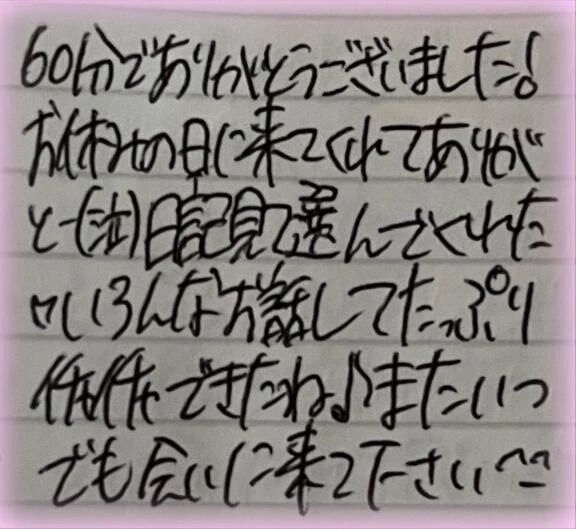 60分でありがとうございました!
お休みの日に来てくれてありが
とー(泣)日記見て選んでくれた
いろんなお話してたっぷり
できたね♪またいつ
でも会いに来て下さい^^